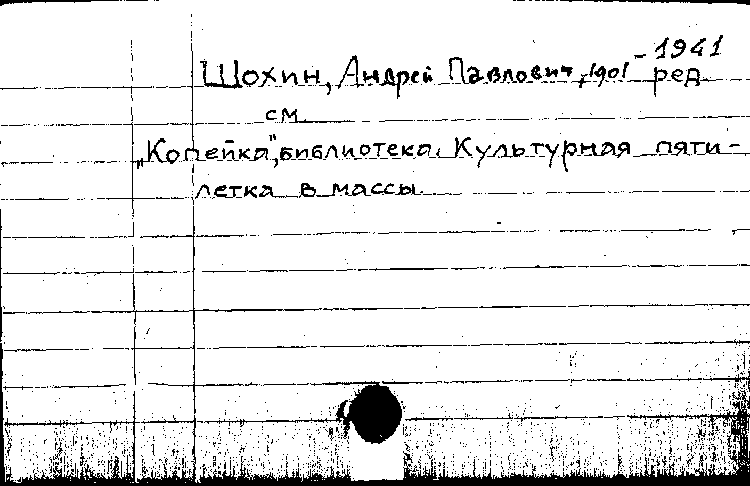 Шохин, Андрей Павлович, 1901 - 1941 ред.
см
„Копейка", библиотека. Культурная пяти-
летка в массы.